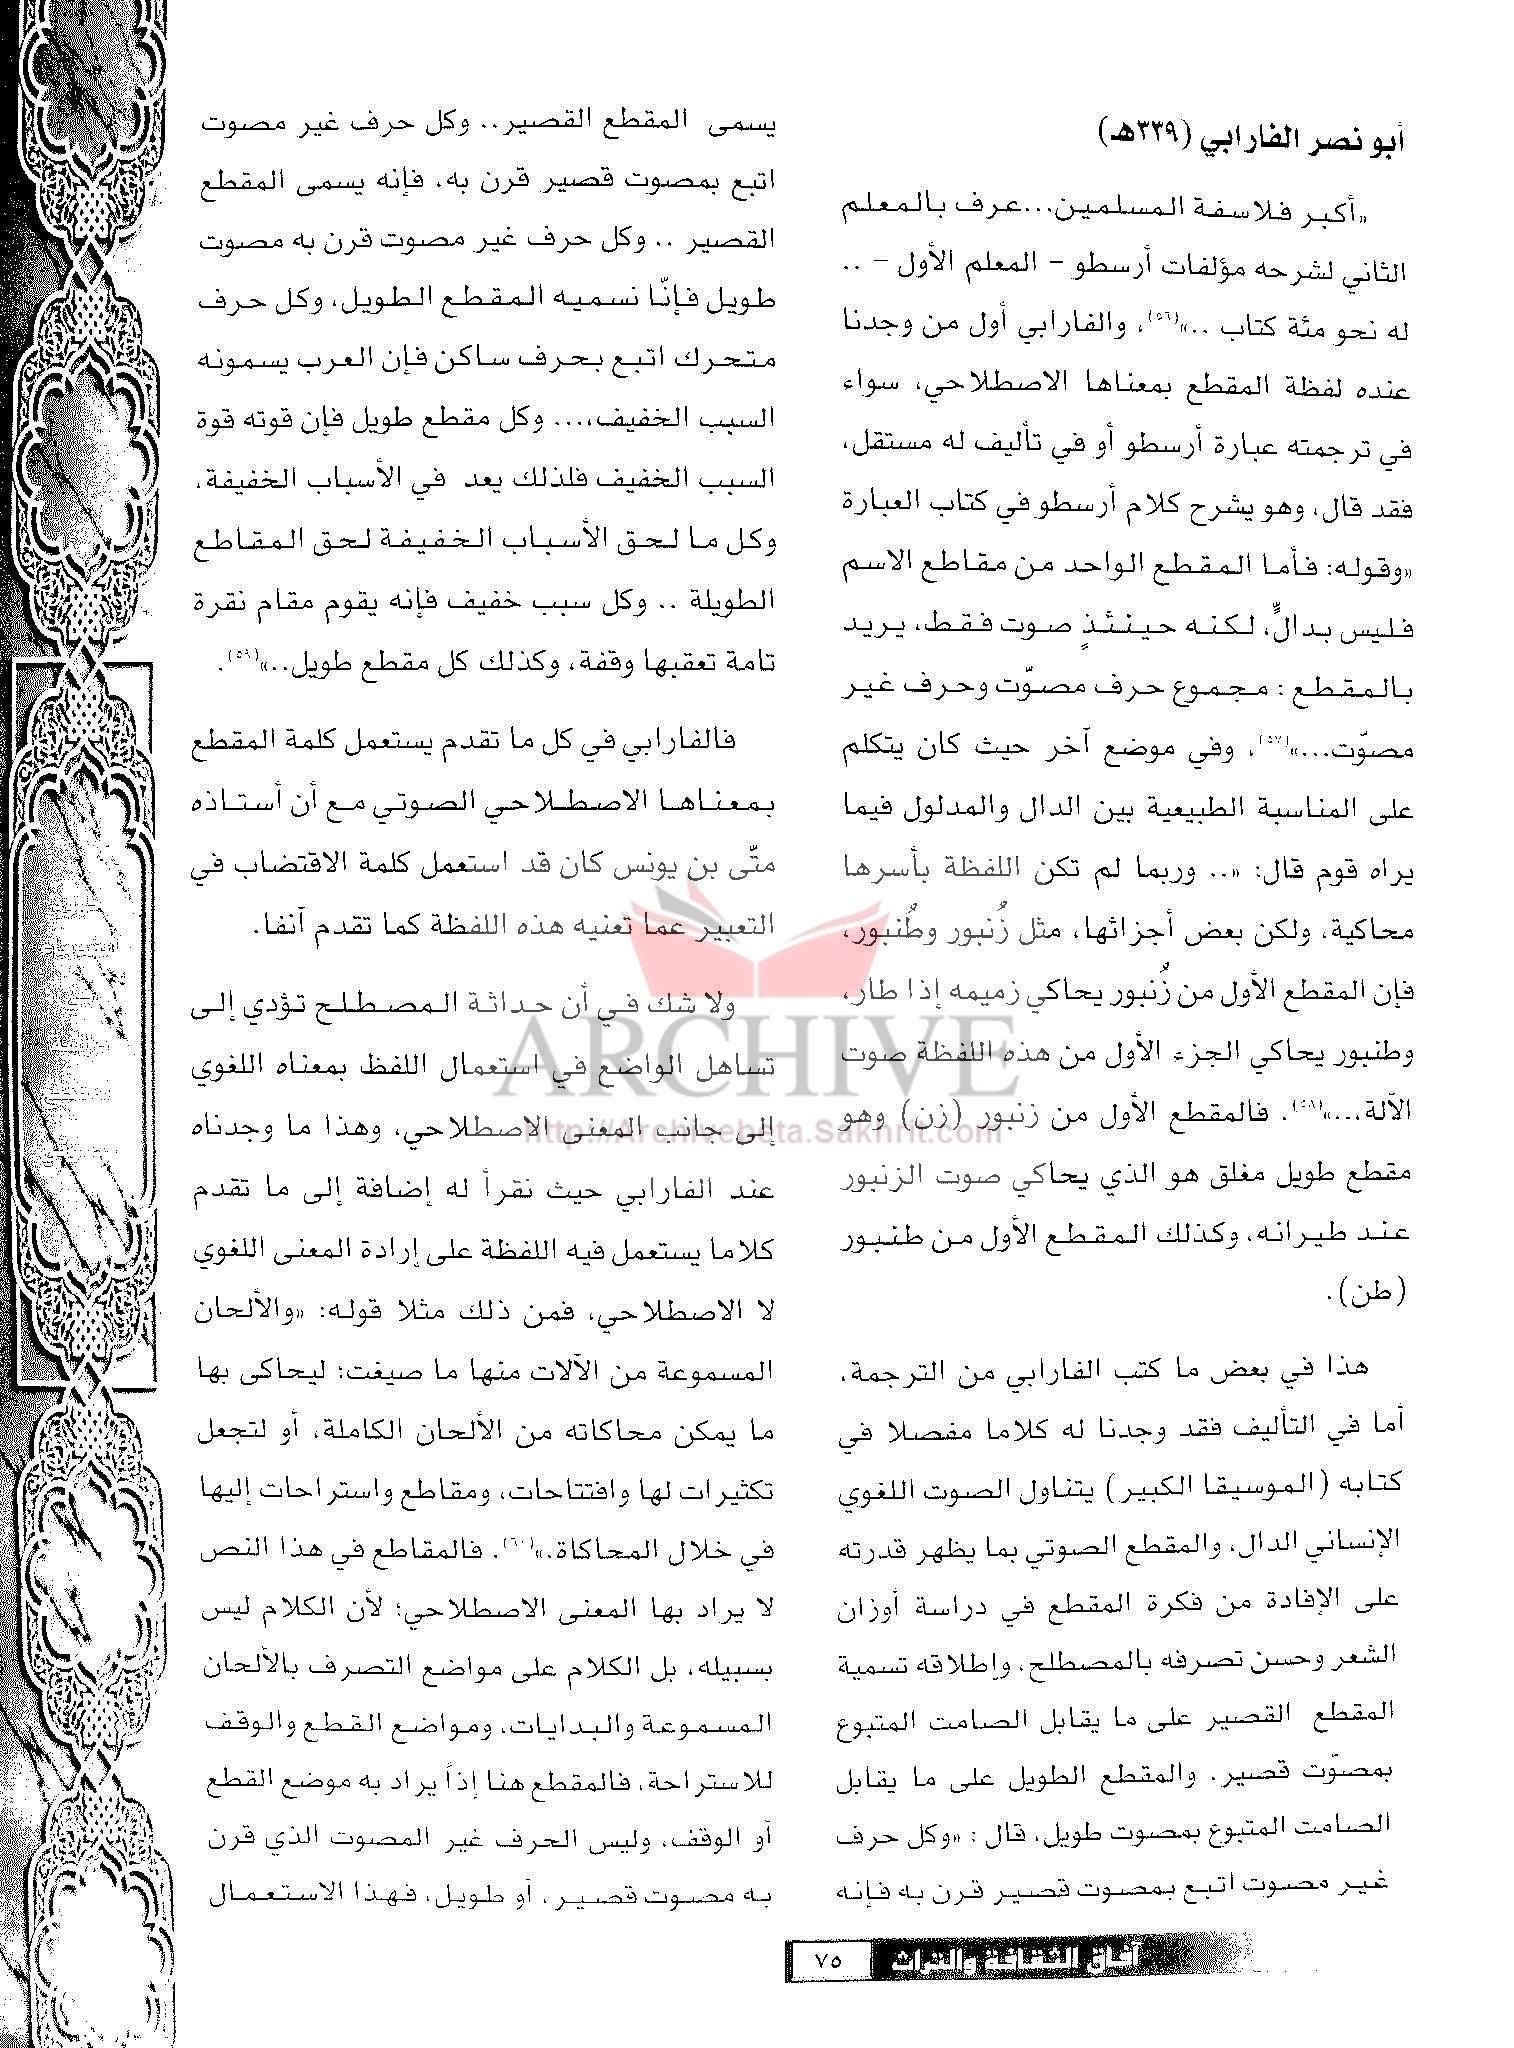 أبو نصر الفارابي (٣٣٩هـ)
«أكبر فلاسفة المسلمين...عرف بالمعلم
الثاني لشرحه مؤلفات أرسطو - المعلم الأول - ..
له نحو مئة كتاب ..»(٥٦)، والفارابي أول من وجدنا
عنده لفظة المقطع بمعناها الاصطلاحي، سواء
في ترجمته عبارة أرسطو أو في تأليف له مستقل،
فقد قال، وهو يشرح كلام أرسطو في كتاب العبارة
«وقوله: فأما المقطع الواحد من مقاطع الاسم
فليس بدالٍّ، لكنه حينئذٍ صوت فقط، يريد
بالمقطع : مجموع حرف مصوّت وحرف غير
مصوّت...»(٥٧)، وفي موضع آخر حيث كان يتكلم
على المناسبة الطبيعية بين الدال والمدلول فيما
يراه قوم قال: «.. وربما لم تكن اللفظة بأسرها
محاكية، ولكن بعض أجزائها، مثل زُنبور وطُنبور،
فإن المقطع الأول من زُنبور يحاكي زميمه إذا طار،
وطنبور يحاكي الجزء الأول من هذه اللفظة صوت
الآلة...»(٥٨). فالمقطع الأول من زنبور (زن) وهو
مقطع طويل مغلق هو الذي يحاكي صوت الزنبور
عند طيرانه، وكذلك المقطع الأول من طنبور
(طن).
هذا في بعض ما كتب الفارابي من الترجمة،
أما في التأليف فقد وجدنا له كلاما مفصلا في
كتابه (الموسيقا الكبير) يتناول الصوت اللغوي
الإنساني الدال، والمقطع الصوتي بما يظهر قدرته
على الإفادة من فكرة المقطع في دراسة أوزان
الشعر وحسن تصرفه بالمصطلح، وإطلاقه تسمية
المقطع القصير على ما يقابل الصامت المتبوع
بمصوّت قصير، والمقطع الطويل على ما يقابل
الصامت المتبوع بمصوت طويل، قال : «وكل حرف
غير مصوت اتبع بمصوت قصير قرن به فإنه
يسمى المقطع القصير.. وكل حرف غير مصوت
اتبع بمصوت قصير قرن به، فإنه يسمى المقطع
القصير .. وكل حرف غير مصوت قرن به مصوت
طويل فإنّا نسميه المقطع الطويل، وكل حرف
متحرك اتبع بحرف ساكن فإن العرب يسمونه
السبب الخفيف،... وكل مقطع طويل فإن قوته قوة
السبب الخفيف فلذلك يعد في الأسباب الخفيفة،
وكل ما لحق الأسباب الخفيفة لحق المقاطع
الطويلة .. وكل سبب خفيف فإنه يقوم مقام نقرة
تامة تعقبها وقفة، وكذلك كل مقطع طويل..»(٥٩).
فالفارابي في كل ما تقدم يستعمل كلمة المقطع
بمعناها الاصطلاحي الصوتي مع أن أستاذه
متّى بن يونس كان قد استعمل كلمة الاقتضاب في
التعبير عما تعنيه هذه اللفظة كما تقدم آنفا.
ولا شك في أن حداثة المصطلح تؤدي إلى
تساهل الواضع في استعمال اللفظ بمعناه اللغوي
إلى جانب المعنى الاصطلاحي، وهذا ما وجدناه
عند الفارابي حيث نقرأ له إضافة إلى ما تقدم
كلاما يستعمل فيه اللفظة على إرادة المعنى اللغوي
لا الاصطلاحي، فمن ذلك مثلا قوله: «والألحان
المسموعة من الآلات منها ما صيغت؛ ليحاكى بها
ما يمكن محاكاته من الألحان الكاملة، أو لتجعل
تكثيرات لها وافتتاحات، ومقاطع واستراحات إليها
في خلال المحاكاة.»(٦٠). فالمقاطع في هذا النص
لا يراد بها المعنى الاصطلاحي؛ لأن الكلام ليس
بسبيله، بل الكلام على مواضع التصرف بالألحان
المسموعة والبدايات، ومواضع القطع والوقف
للاستراحة، فالمقطع هنا إذاً يراد به موضع القطع
أو الوقف، وليس الحرف غير المصوت الذي قرن
به مصوت قصير، أو طويل، فهذا الاستعمال
ARCHIVE
http://Archivebeta.Sakhrit.com
آفاق الثقافة والتراث
٧٥